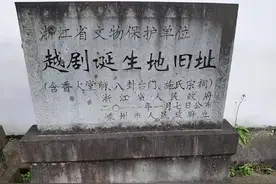 浙江省文物保护单位
越剧诞生地旧址
(含香火堂前、八卦台门、施氏宗祠)
浙江省人民政府
二〇一一年一月七日公布
嵊州市人民政府立